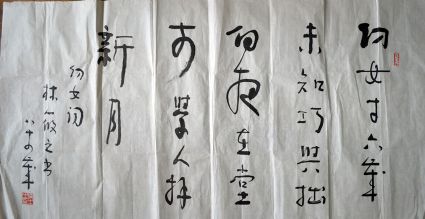 幼女才六歲
未知巧與拙
向夜在堂
前學人拜
新月
幼女词
林筱之书
八十四歲